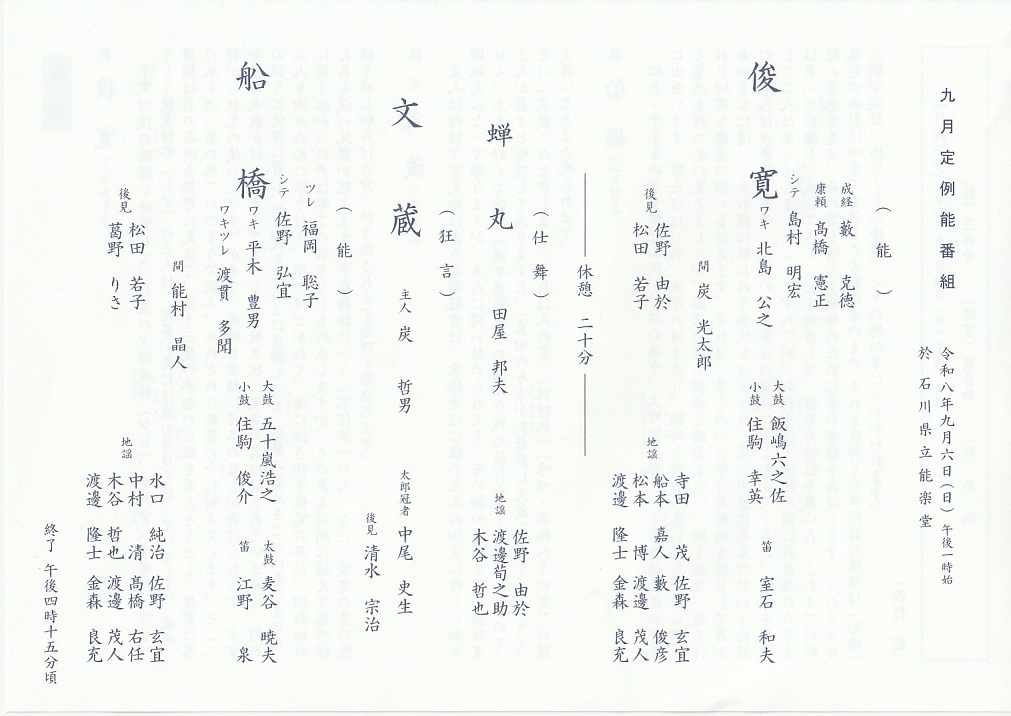 九月定例能番組
令和八年九月六日(日)午後一時始
於 石川県立能楽堂
(能)
俊寛
成経 藪 克徳
康頼 髙橋 憲正
シテ 島村 明宏
ワキ 北島 公之
間 炭 光太郎
大鼓 飯嶋六之佐
小鼓 住駒 幸英
笛 室石 和夫
後見 佐野 由於
松田 若子
地謡
寺田 茂 佐野 玄宜
船本 嘉人 藪 俊彦
松本 博 渡邊 茂人
渡邊 隆士 金森 良充
休憩 二十分
(仕舞)
蝉丸 田屋 邦夫
地謡
佐野 由於
渡邊荀之助
木谷 哲也
(狂言)
文蔵
主人 炭 哲男
太郎冠者 中尾 史生
後見 清水 宗治
(能)
船橋
ツレ 福岡 聡子
シテ 佐野 弘宜
ワキ 平木 豊男
ワキツレ 渡貫 多聞
間 能村 晶人
大鼓 五十嵐浩之
小鼓 住駒 俊介
太鼓 麦谷 暁夫
笛 江野 泉
後見 松田 若子
葛野 りさ
地謡
水口 純治 佐野 玄宜
中村 清 髙橋 右任
木谷 哲也 渡邊 茂人
渡邊 隆士 金森 良充
終了 午後四時十五分頃